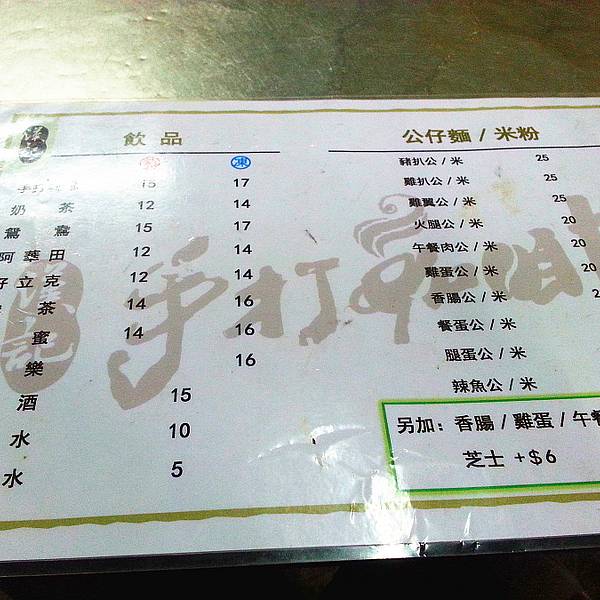 飲品
熱 凍
手打 15 17
奶茶 12 14
鴛鴦 15 17
阿華田 12 14
立克 12 14
茶 14 16
蜜 14 16
樂 16
酒 15
水 10
水 5
公仔麵 / 米粉
豬扒公 / 米 25
雞扒公 / 米 25
雞翼公 / 米 25
火腿公 / 米 20
午餐肉公 / 米 20
雞蛋公 / 米 20
香腸公 / 米
餐蛋公 / 米
腿蛋公 / 米
辣魚公 / 米
另加: 香腸 / 雞蛋 / 午餐
芝士 +$6
記 手打